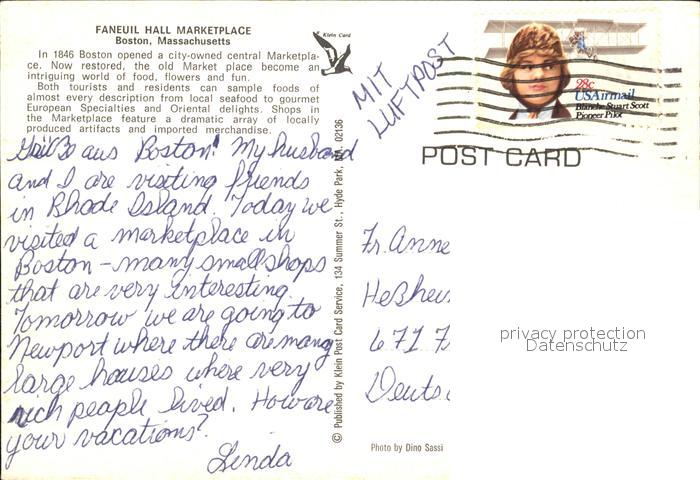 FANEUIL HALL MARKETPLACE
Boston, Massachusetts
In 1846 Boston opened a city-owned central Marketpla-
ce. Now restored, the old Market place become an
intriguing world of food, flowers and fun.
Both tourists and residents can sample foods of
almost every description from local seafood to gourmet
European Specialties and Oriental delights. Shops in
the Marketplace feature a dramatic array of locally
produced artifacts and imported merchandise.
Klein Card
Grüß aus Boston! My husband
and I are visiting friends
in Rhode Island. Today we
visited a marketplace in
Boston – many small shops
that are very interesting.
Tomorrow we are going to
Newport where there are many
large houses where very
rich people lived. How are
your vacations?
Linda
© Published by Klein Post Card Service, 134 Summer St., Hyde Park, MA. 02136
MIT
LUFTPOST
28c
USAirmail
Blanche Stuart Scott
Pioneer Pilot
POST CARD
Fr. Anne
Heßheu
671 F
Deuts
privacy protection
Datenschutz
Photo by Dino Sassi